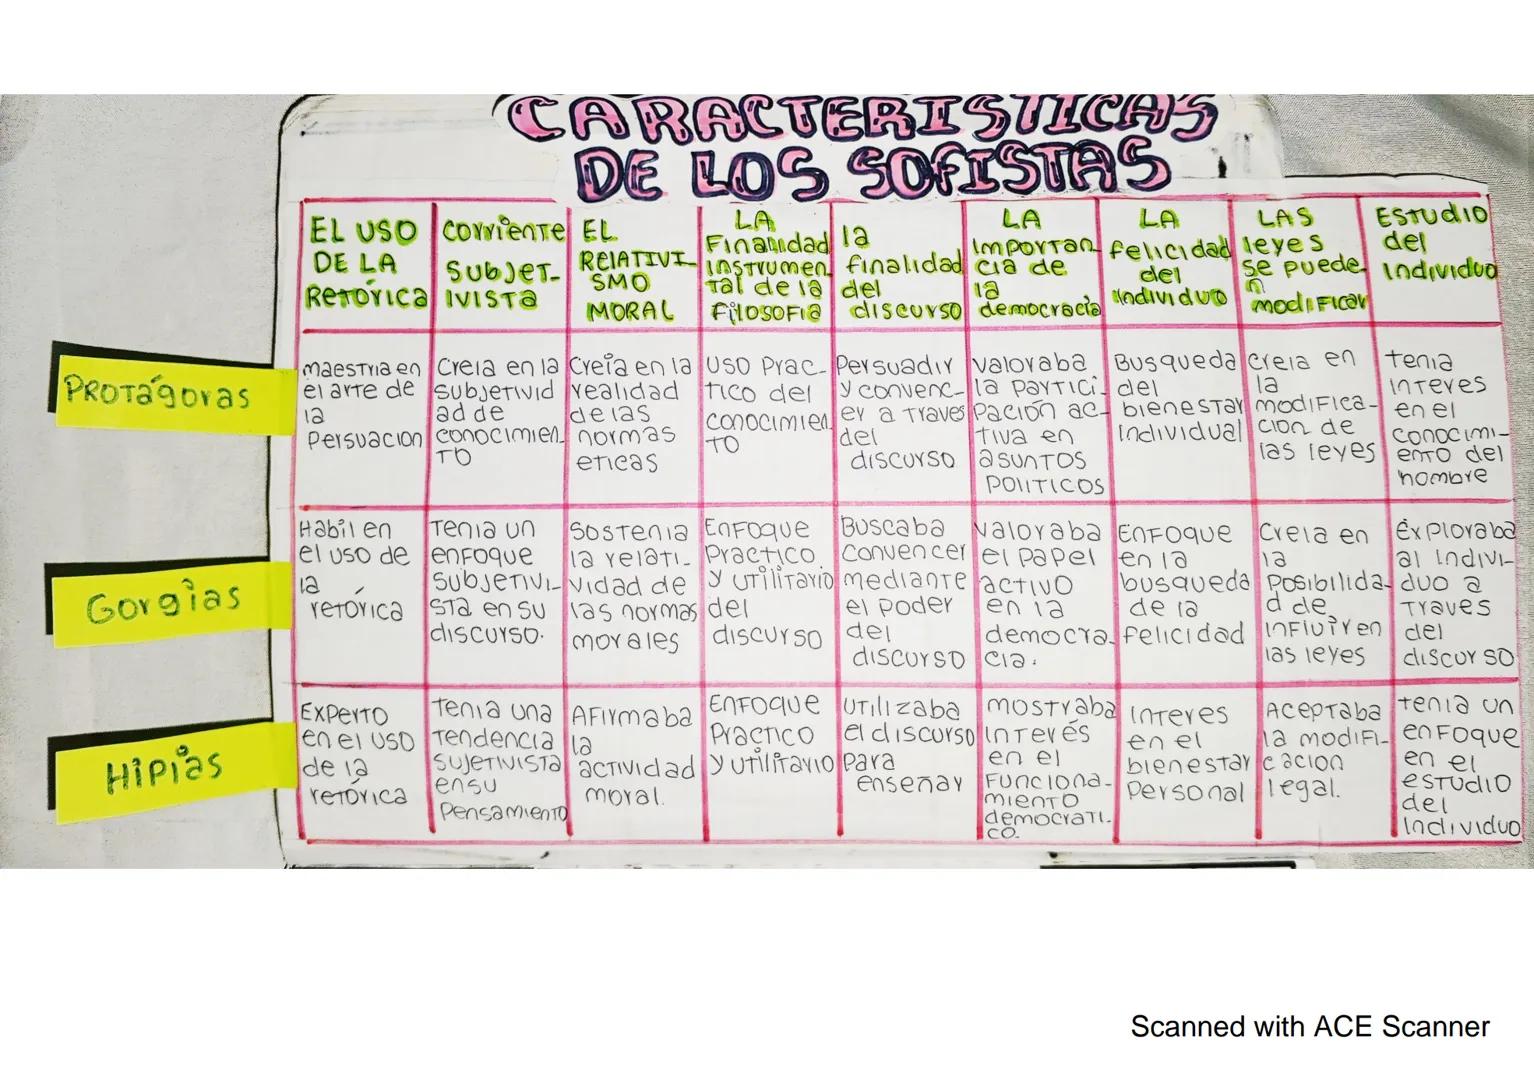 CARACTERISTICAS
DE LOS SOFISTAS
EL USO
DE LA
RETÓRICA
Corriente
SUBJET-
IVISTA
EL
RELATIVI-
SMO
MORAL
LA
Finalidad
instrumen
Tal de la
FILOSOFIA
la
finalidad
del
discurso
LA
importan-
cia de
la
democracia
LA
felicidad
del
individuo
LAS
leyes
se puede
n
modificar
ESTUDIO
del
individuo
PROTágoras
maestria en
el arte de
la
Persuacion
Creia en la
subjetivid
ad de
conocimien-
TO
Creia en la
realidad
de las
normas
eticas
USO Prac-
tico del
conocimien
TO
Persuadir
y convenc-
er a Traves
del
discurso
Valoraba
la partici-
Pación ac-
tiva en
asuntos
POLITICOS
Busqueda
del
bienestar
Individual
Creia en
la
modifica-
cion de
las leyes
Tenia
interes
en el
conocimi-
ento del
hombre
Gorgias
Habil en
el uso de
la
retórica
Tenia un
enfoque
subjetivi-
sta en su
discurso.
Sostenia
la relati-
vidad de
las normas
morales
Enfoque
Practico
y utilitario
del
discurso
Buscaba
convencer
mediante
el poder
del
discurso
Valoraba
el papel
activo
en la
democra-
cia.
Enfoque
en la
busqueda
de la
felicidad
Creia en
la
Posibilida-
d de
influir en
las leyes
Exploraba
al indivi-
duo a
Traves
del
discurso
Hipias
Experto
en el uso
de la
retórica
Tenia una
Tendencia
sujetivista
en su
Pensamiento
Afirmaba
la
actividad
moral.
Enfoque
Practico
y utilitario
Utilizaba
el discurso
para
enseñar
mostraba
Interés
en el
Funciona-
miento
democrati-
co.
Interes
en el
bienestar
Personal
Aceptaba
la modifi-
cacion
legal.
tenia un
enfoque
en el
estudio
del
Individuo
Scanned with ACE Scanner